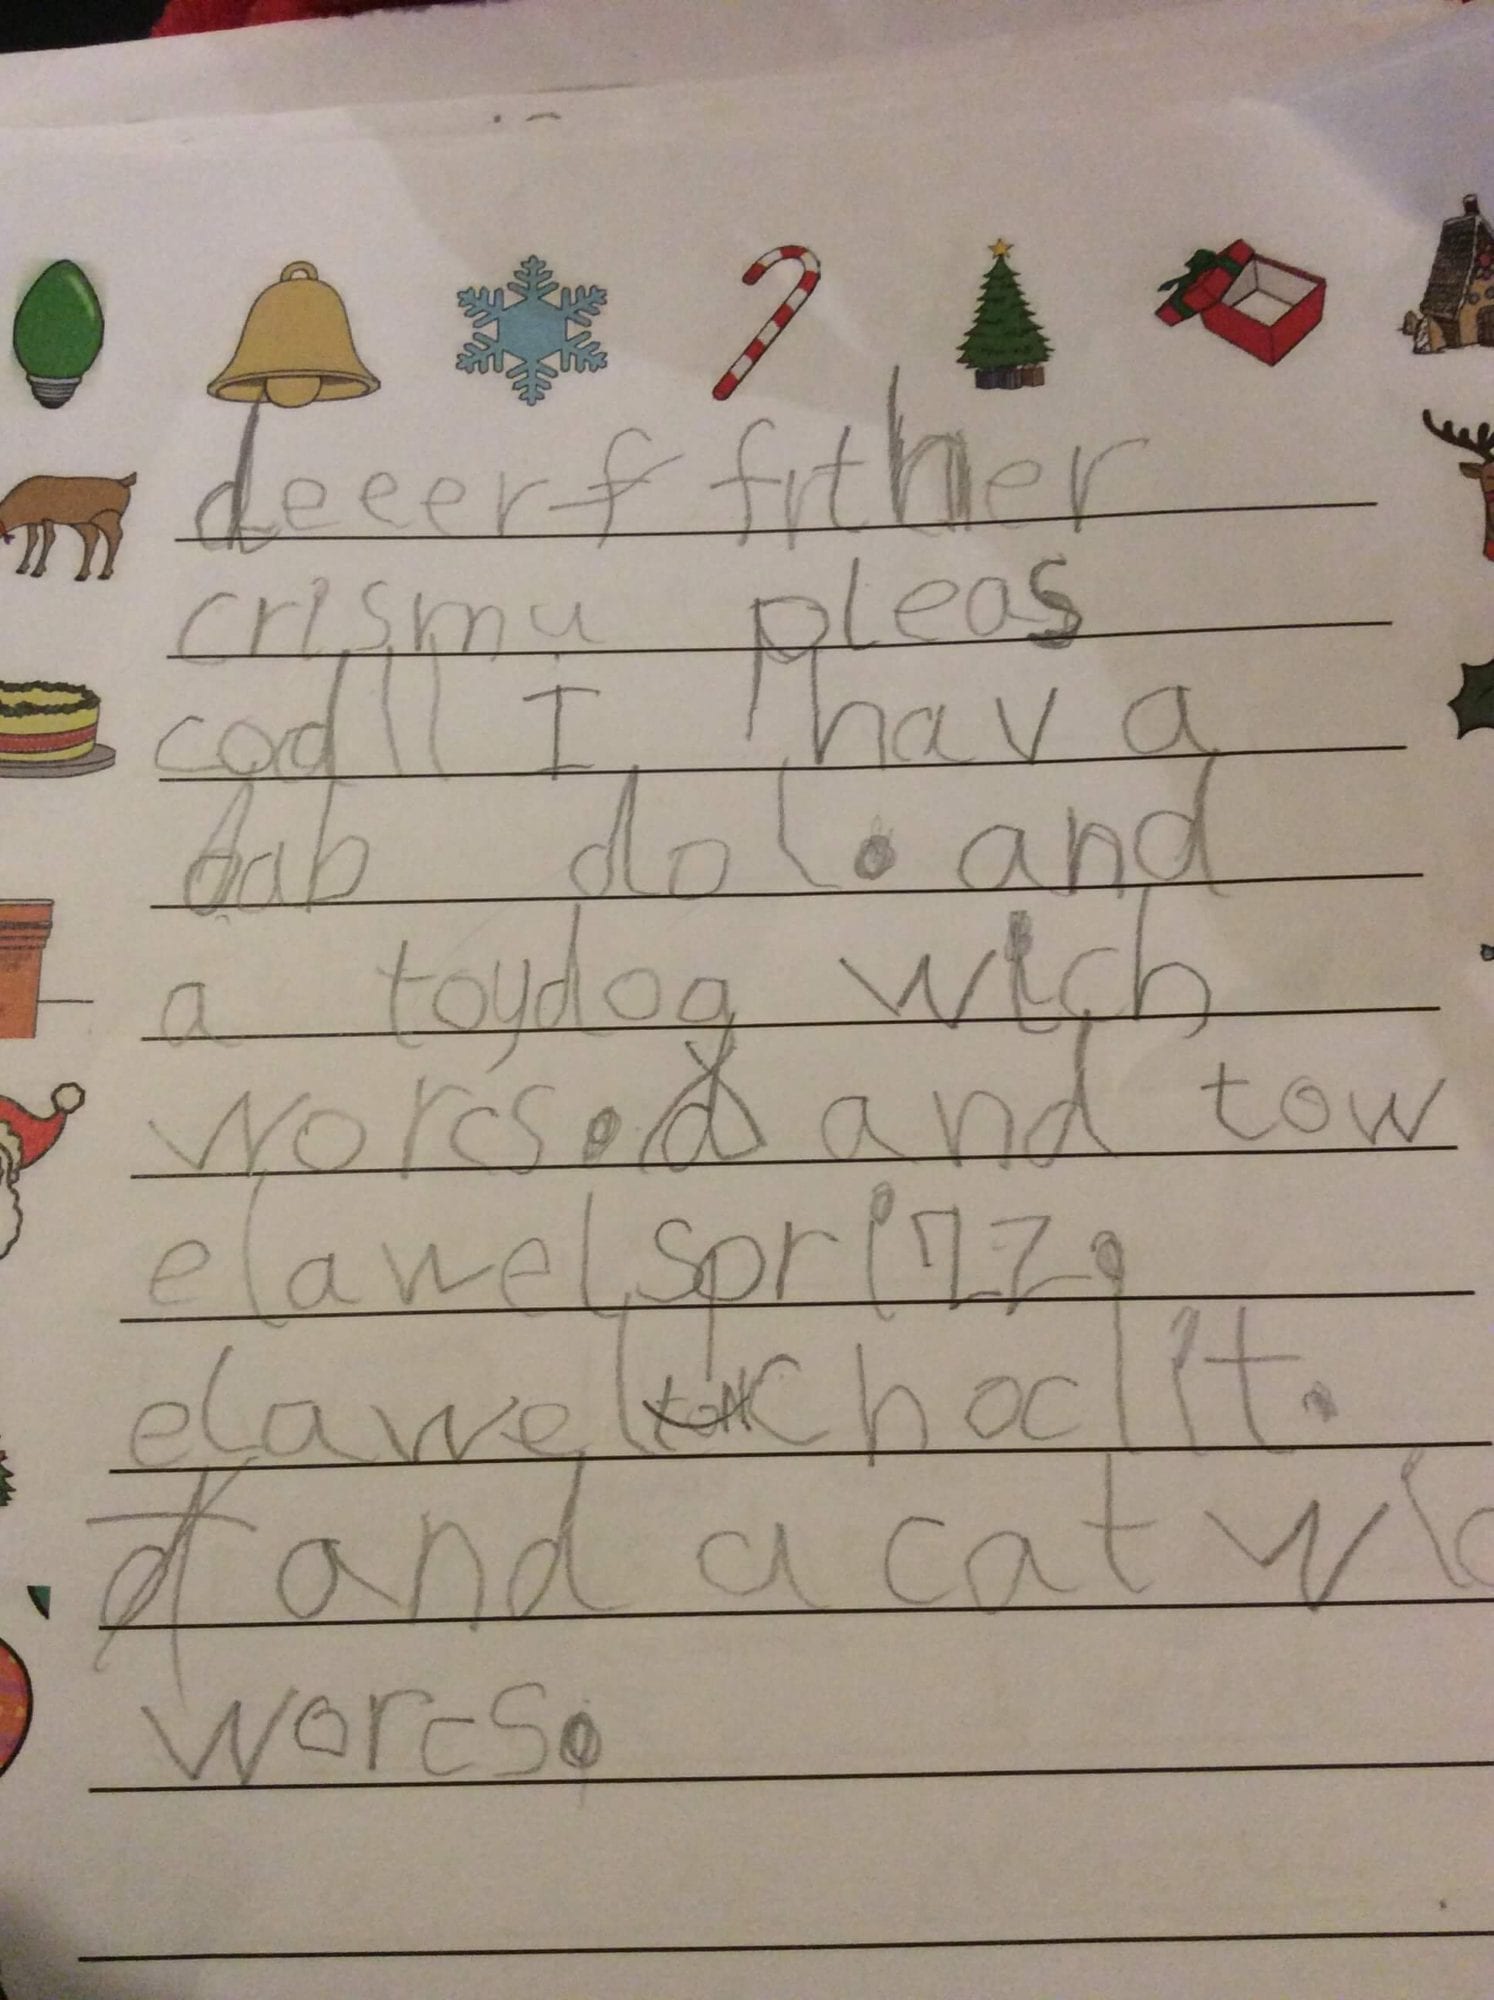 deeer frther
crismu pleas
codll I hav a
bab dol. and
a toydog wich
worcs. and tow
elawel sprizz.
elawel choclit.
and a cat wic
worcs.